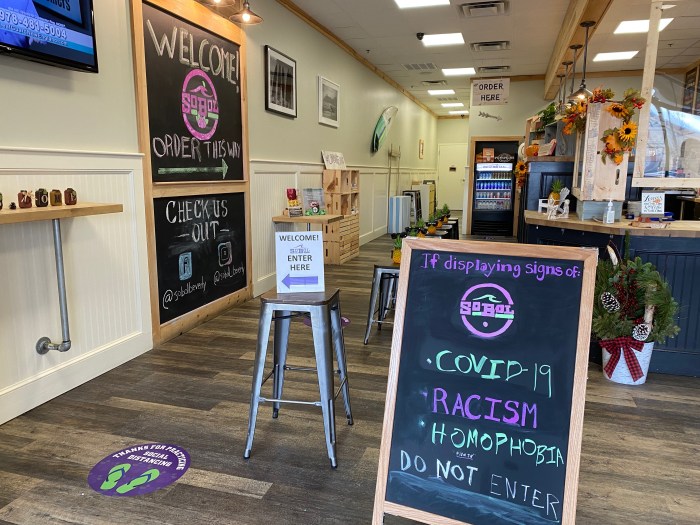 978-481-5004
WELCOME!
SOBOL
ORDER THIS WAY
CHECK US
OUT
@sobolbeverly
@sobol_beverly
ORDER
HERE
WELCOME!
ENTER
HERE
THANKS FOR PRACTICING
SOCIAL
DISTANCING
If displaying signs of:
SOBOL
COVID-19
RACISM
HOMOPHOBIA
DO NOT ENTER